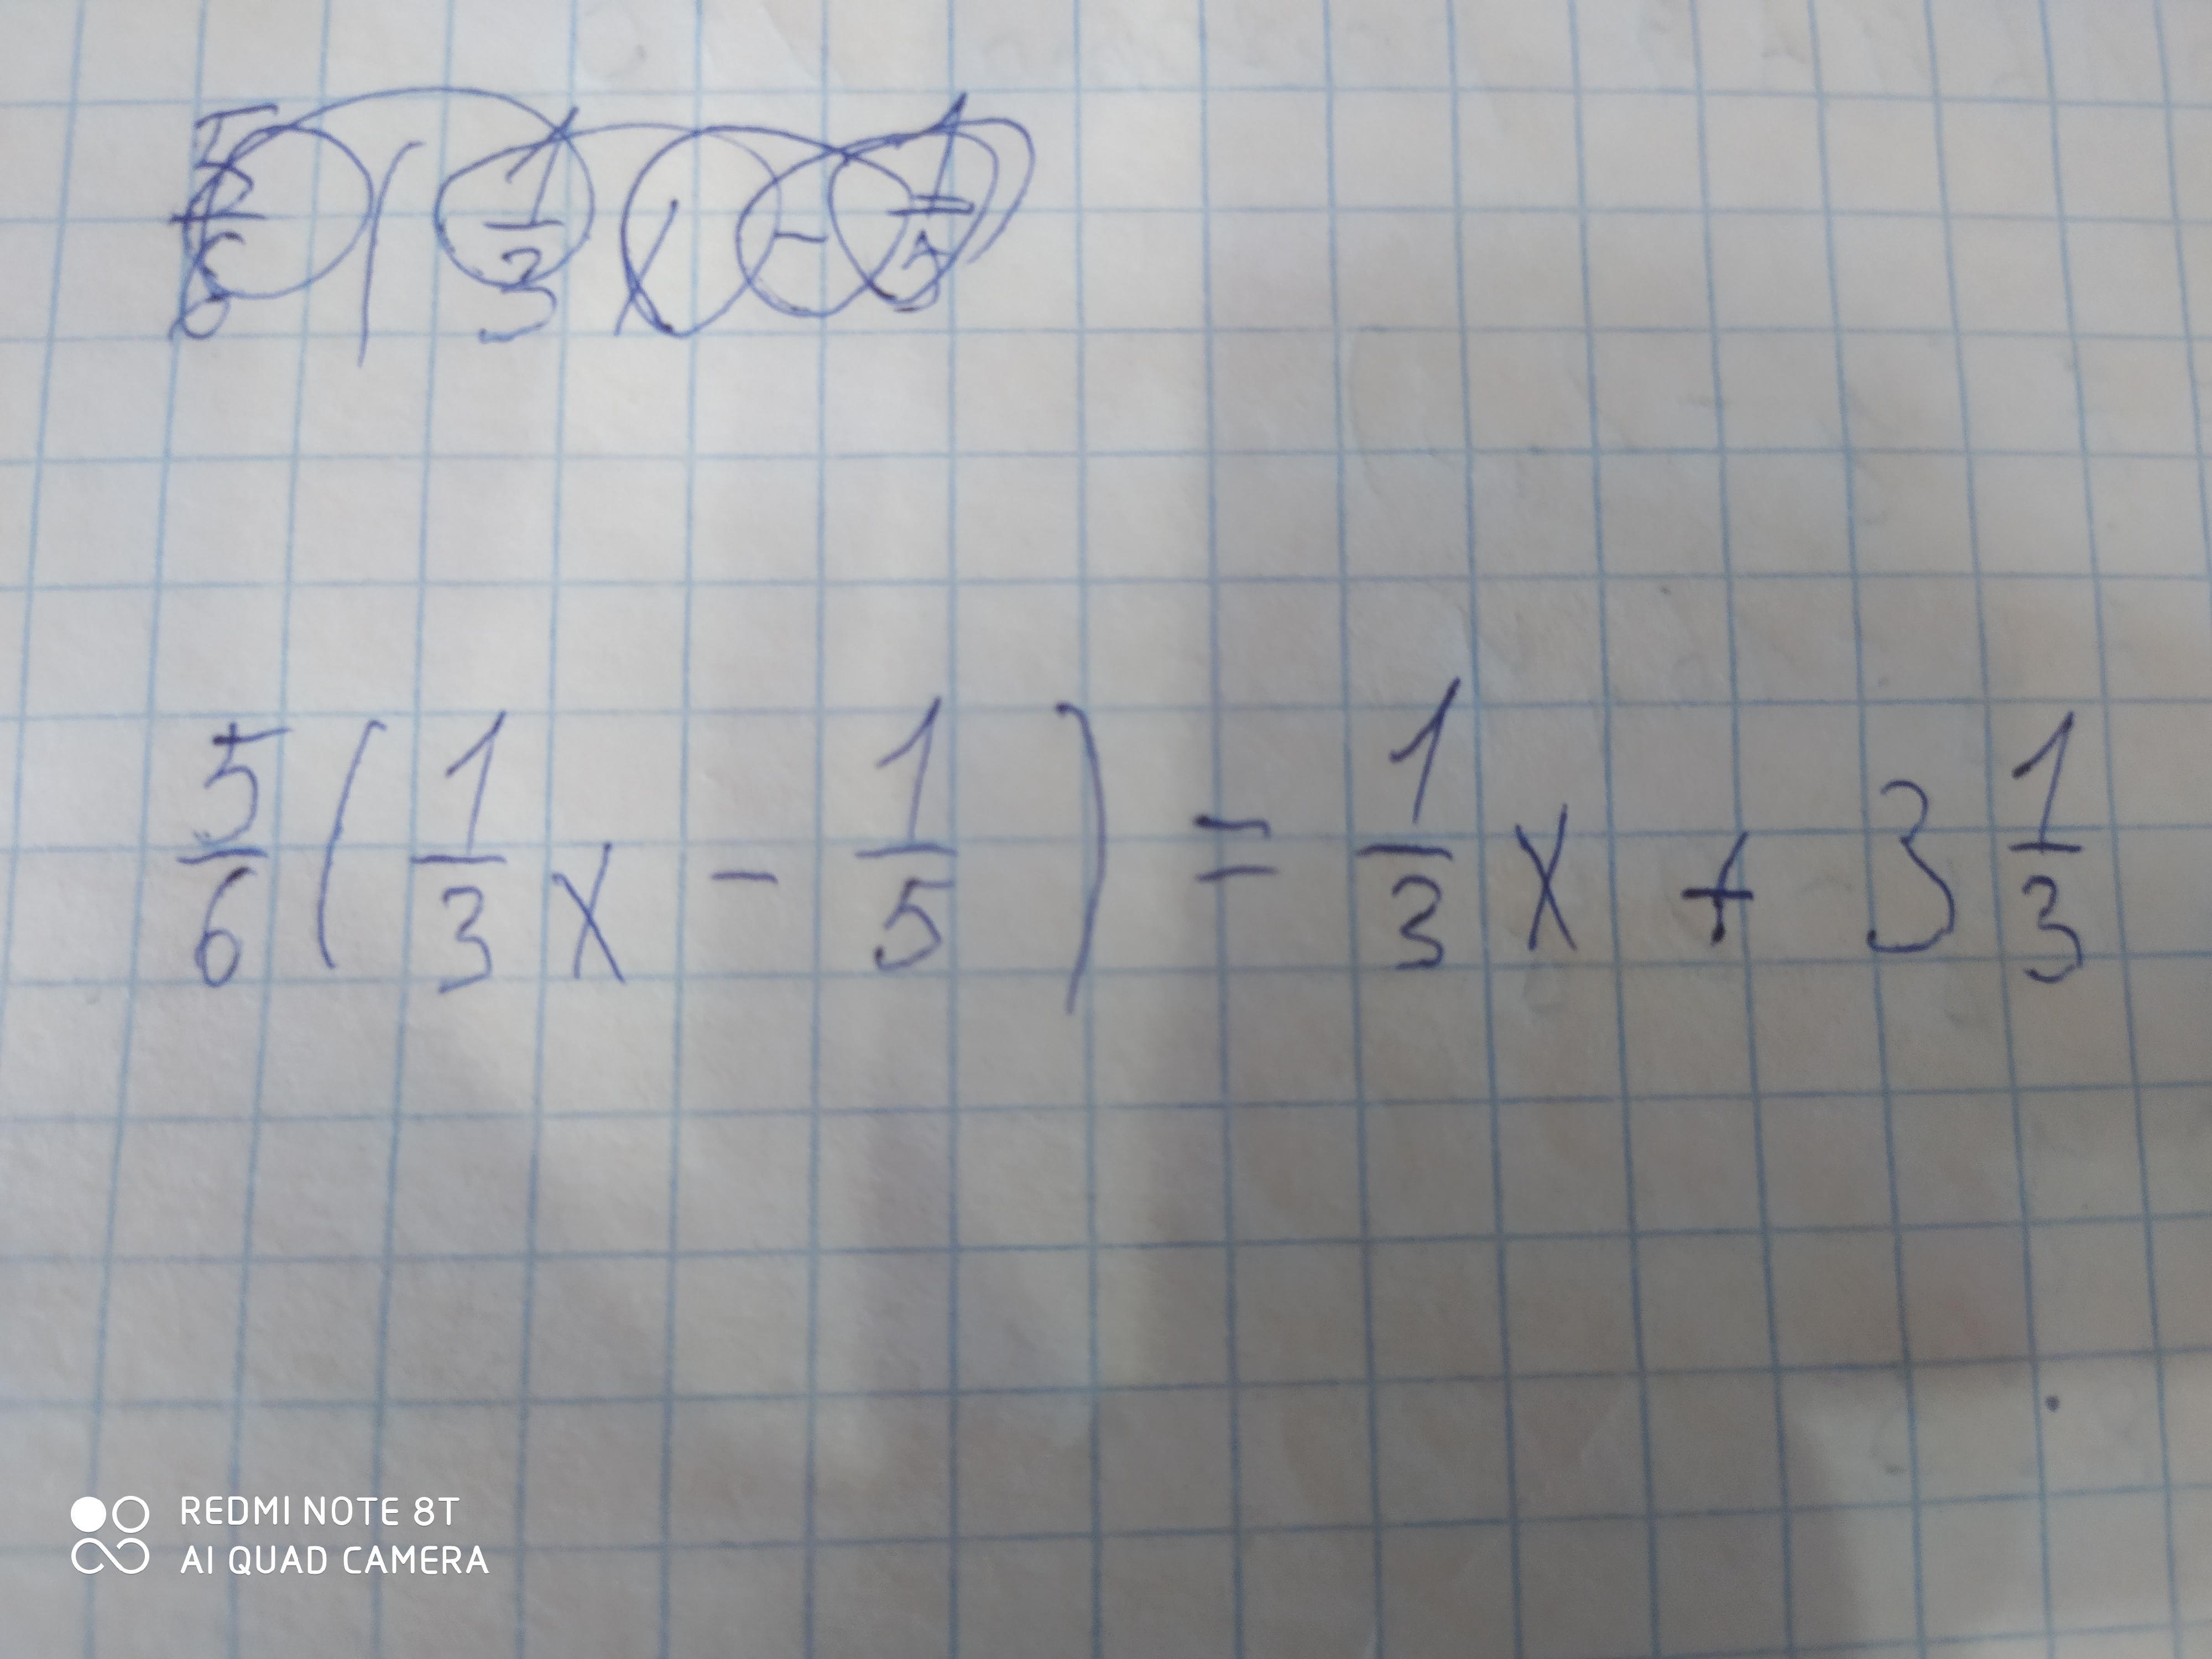 5/6 (1/3 x - 1/5) = 1/3 x + 3 1/3
REDMI NOTE 8T
AI QUAD CAMERA